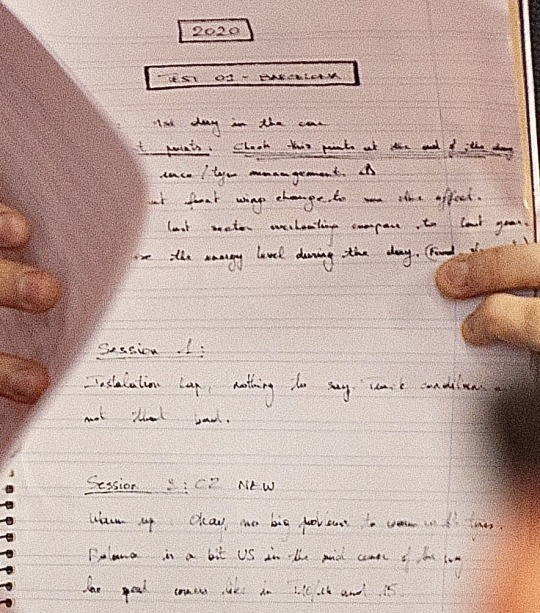 2020
TEST 01 - BARCELONA
1st day in the car
t points. Check this points at the end of the day
ence / tyre management.
ut front wing change to see the effect.
last sector overheating compare to last year.
se the energy level during the day. (Food
Session 1:
Instalation Lap, nothing to say. Track conditions
not that bad.
Session 2: C2 NEW
Warm up: Okay, no big problems to warm up the tyres.
Balance is a bit US in the mid corner of the
low speed corners like in T10/14 and 15.